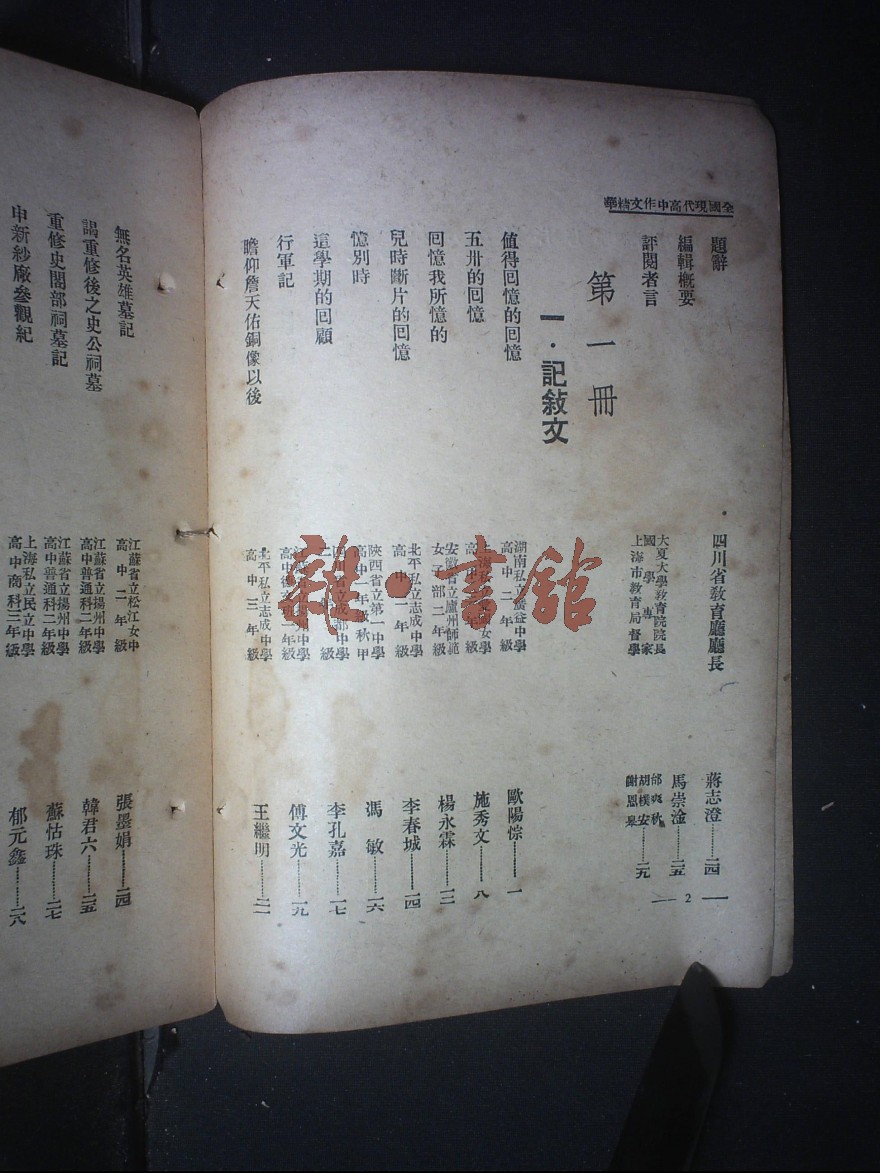 全國現代高中作文精華
題辭 四川省教育廳廳長 蔣志澄………二四
編輯概要 馬崇淦………二五
評閱者言 大夏大學教育院院長 邰爽秋
國學專家 胡樸安
上海市教育局督學 謝恩皋………二九
第一冊
一・記敍文
值得回憶的回憶 湖南私立廣益中學高中二年級 歐陽悰………一
五卅的回憶 高中一年級 施秀文………八
回憶我所憶的 安徽省立廬州師範女子部二年級 楊永霖………一二
兒時斷片的回憶 北平私立志成中學高中一年級 李春城………一四
憶別時 陝西省立第一中學高中一年級秋甲 馮敏………一六
這學期的回顧 四川省立成都中學 李孔嘉………一七
行軍記 傅文光………一九
瞻仰詹天佑銅像以後 北平私立志成中學高中三年級 王繼明………二一
— 2 —
無名英雄墓記 江蘇省立松江女中高中二年級 張墨娟………二四
謁重修後之史公祠墓 江蘇省立揚州中學高中普通科二年級 韓君六………二五
重修史閣部祠墓記 江蘇省立揚州中學高中普通科二年級 蘇怙珠………二七
申新紗廠參觀紀 上海私立民立中學高中商科三年級 郁元鑫………二八
雜・書館